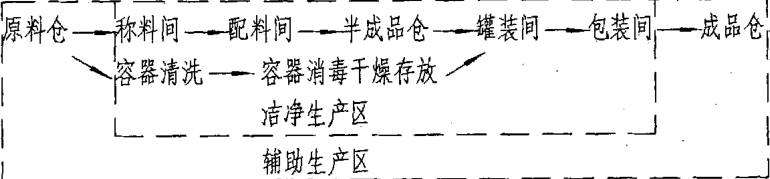 原料仓 称料间 配料间 半成品仓 罐装间 包装间 成品仓
容器清洗 容器消毒干燥存放
洁净生产区
辅助生产区